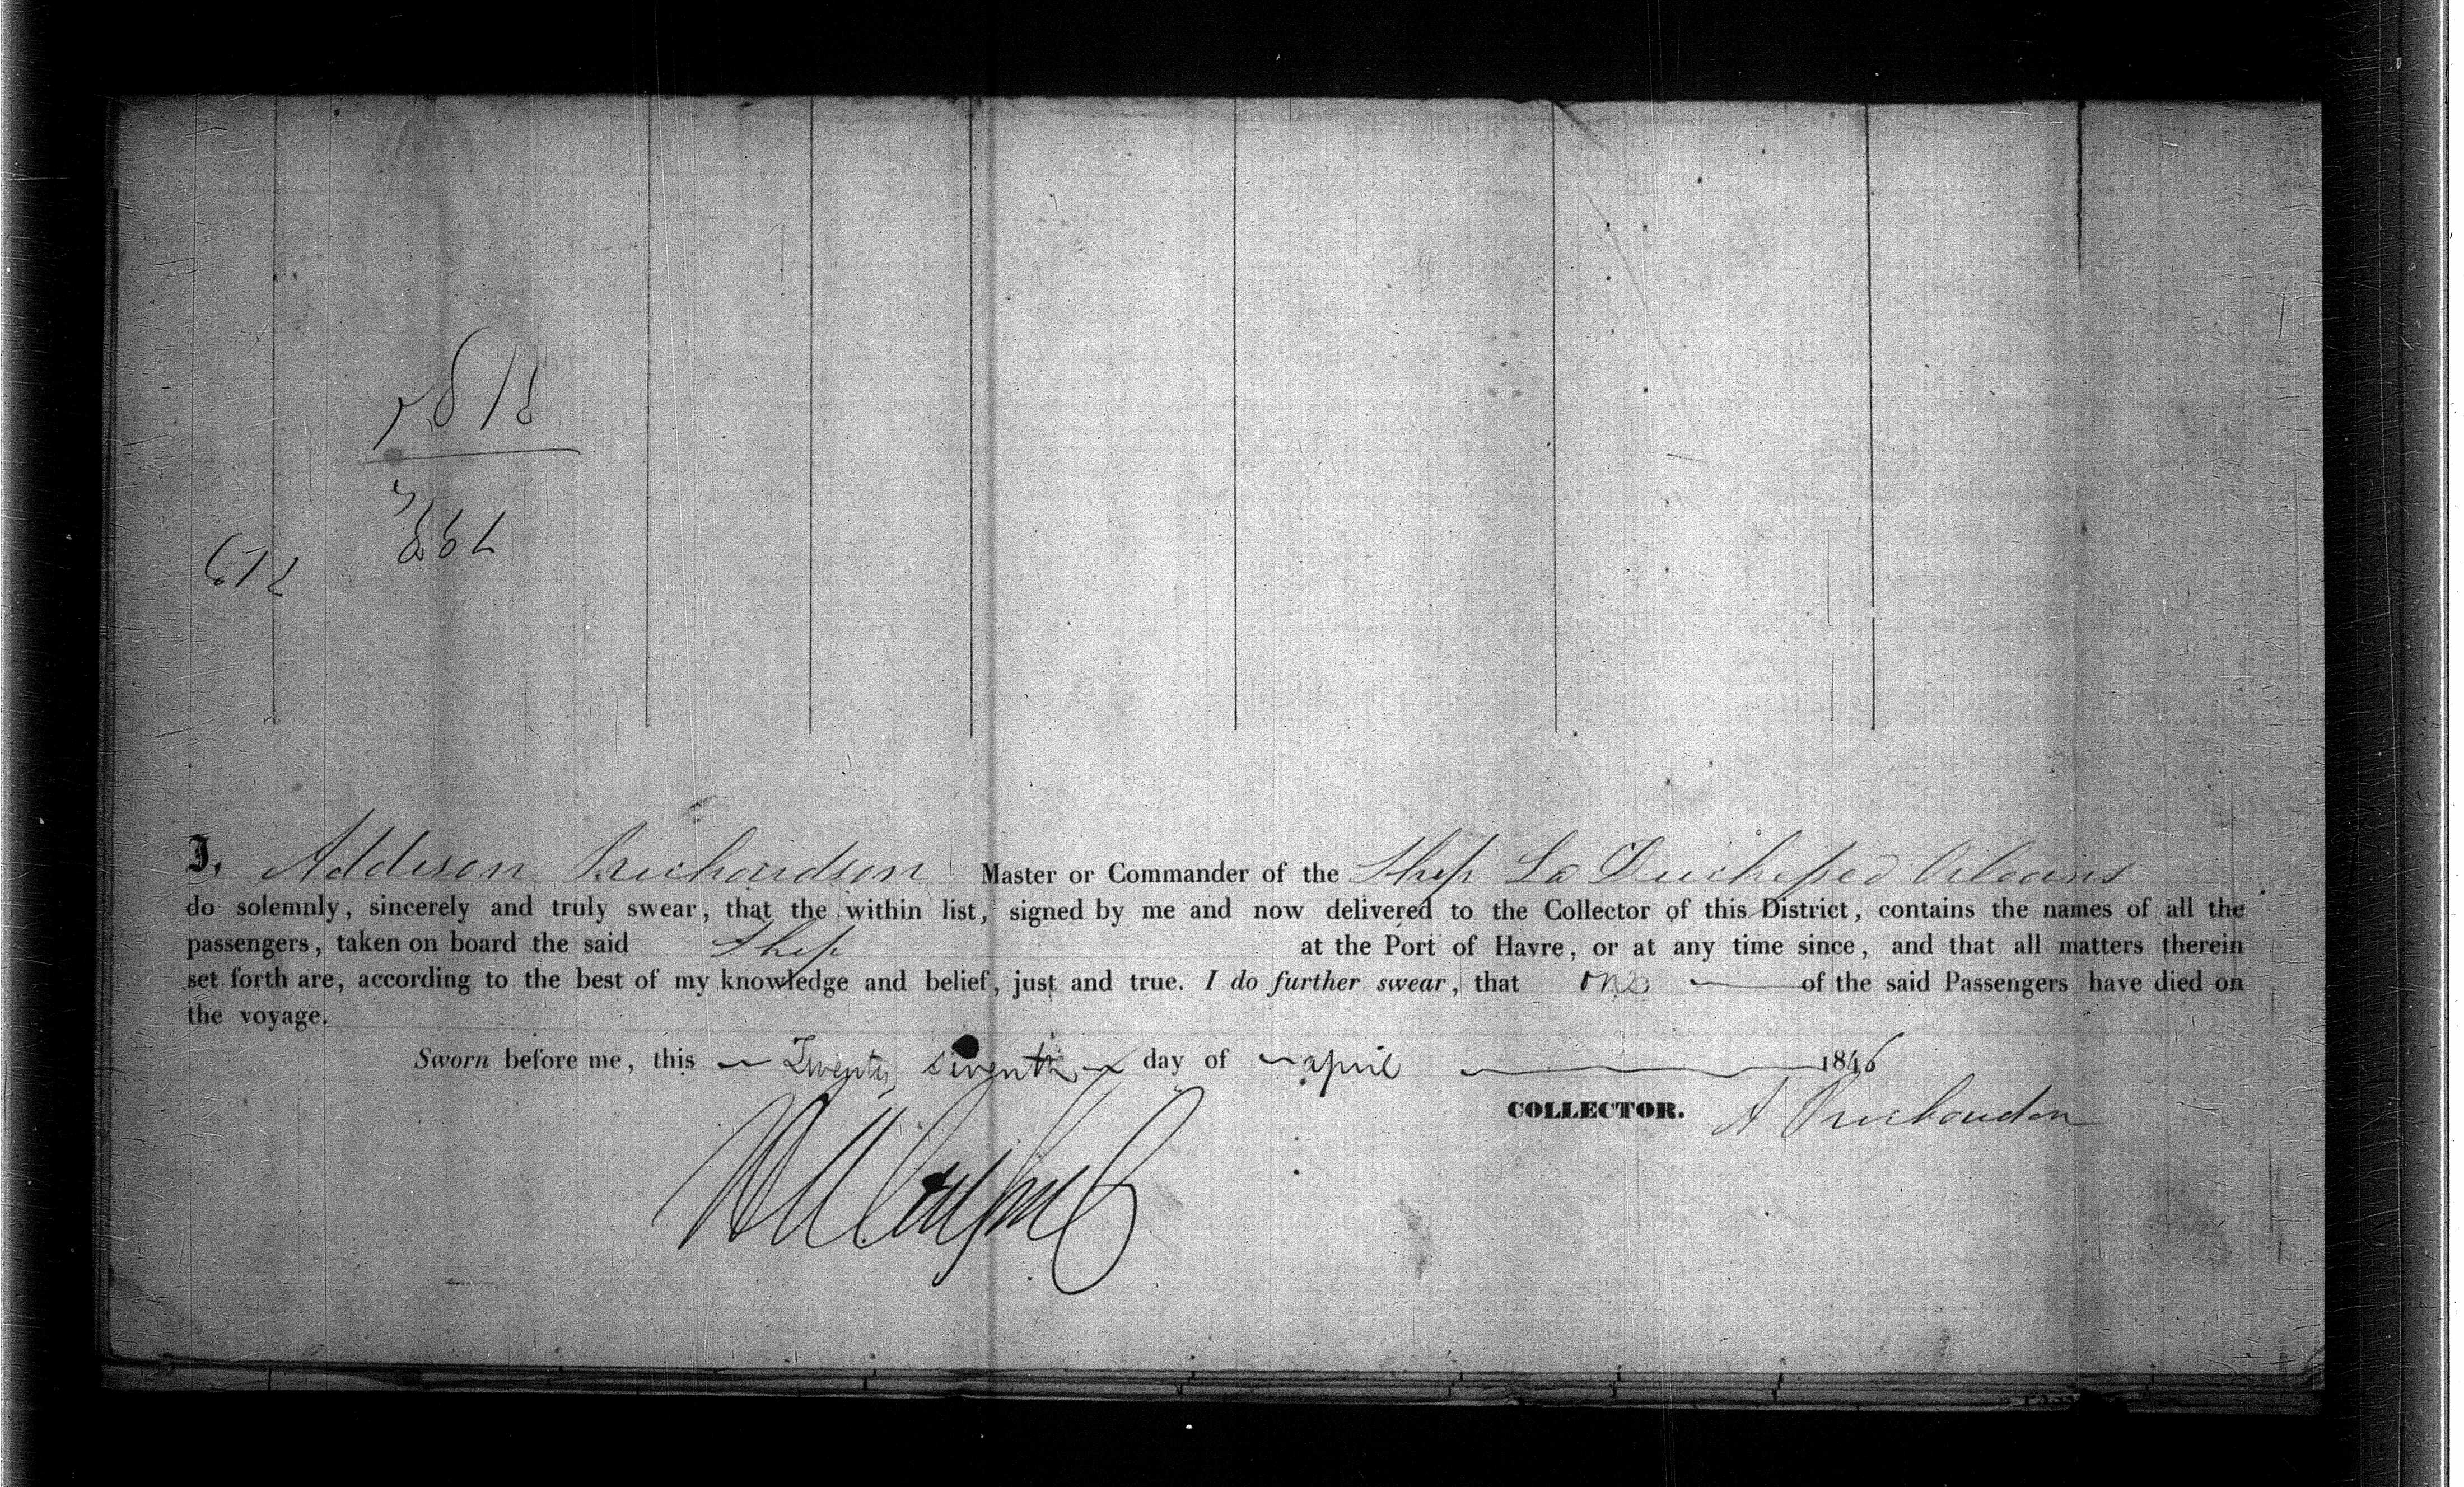 I, Addison Richardson Master or Commander of the Ship La Duchesse d Orleans
do solemnly, sincerely and truly swear, that the within list, signed by me and now delivered to the Collector of this District, contains the names of all the
passengers, taken on board the said Ship at the Port of Havre, or at any time since, and that all matters therein
set forth are, according to the best of my knowledge and belief, just and true. I do further swear, that one of the said Passengers have died on
the voyage.
Sworn before me, this Twenty Seventh day of april 1846
COLLECTOR. A Richardson